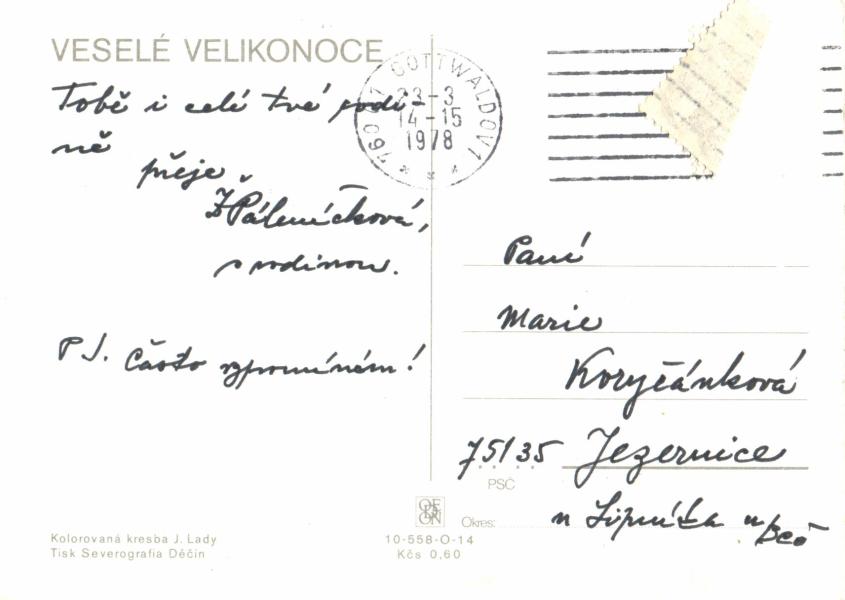 VESELÉ VELIKONOCE
Tobě i celé tvé rodi-
ně
přeje
Ž Páleníčková,
s rodinou.
P S. Často vzpomínám!
760 01 GOTTWALDOV 1
23-3
14-15
1978
Paní
Marie
Koryčánková
75135 Jezernice
PSČ
Okres: u Lipníka n/Beč
ODEON
Kolorovaná kresba J. Lady
Tisk Severografia Děčín
10-558-O-14
Kčs 0,60